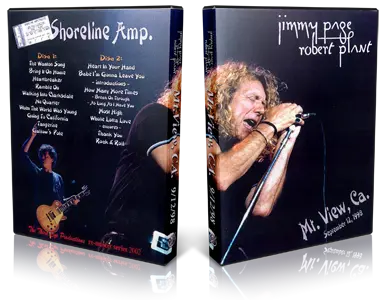 Shoreline Amp.
Disc 1:
The Wanton Song
Bring It On Home
Heartbreaker
Ramble On
Walking Into Clarksdale
No Quarter
When The World Was Young
Going To California
Tangerine
Gallow's Pole
Disc 2:
Heart In Your Hand
Babe I'm Gonna Leave You
- introductions -
How Many More Times
- Break On Through
- As Long As I Have You
Most High
Whole Lotta Love
- encores -
Thank You
Rock & Roll
Productions
series 2002
Mt. View, CA. 9/12/98
jimmy page
robert plant
Mt. View, Ca.
September 12, 1998